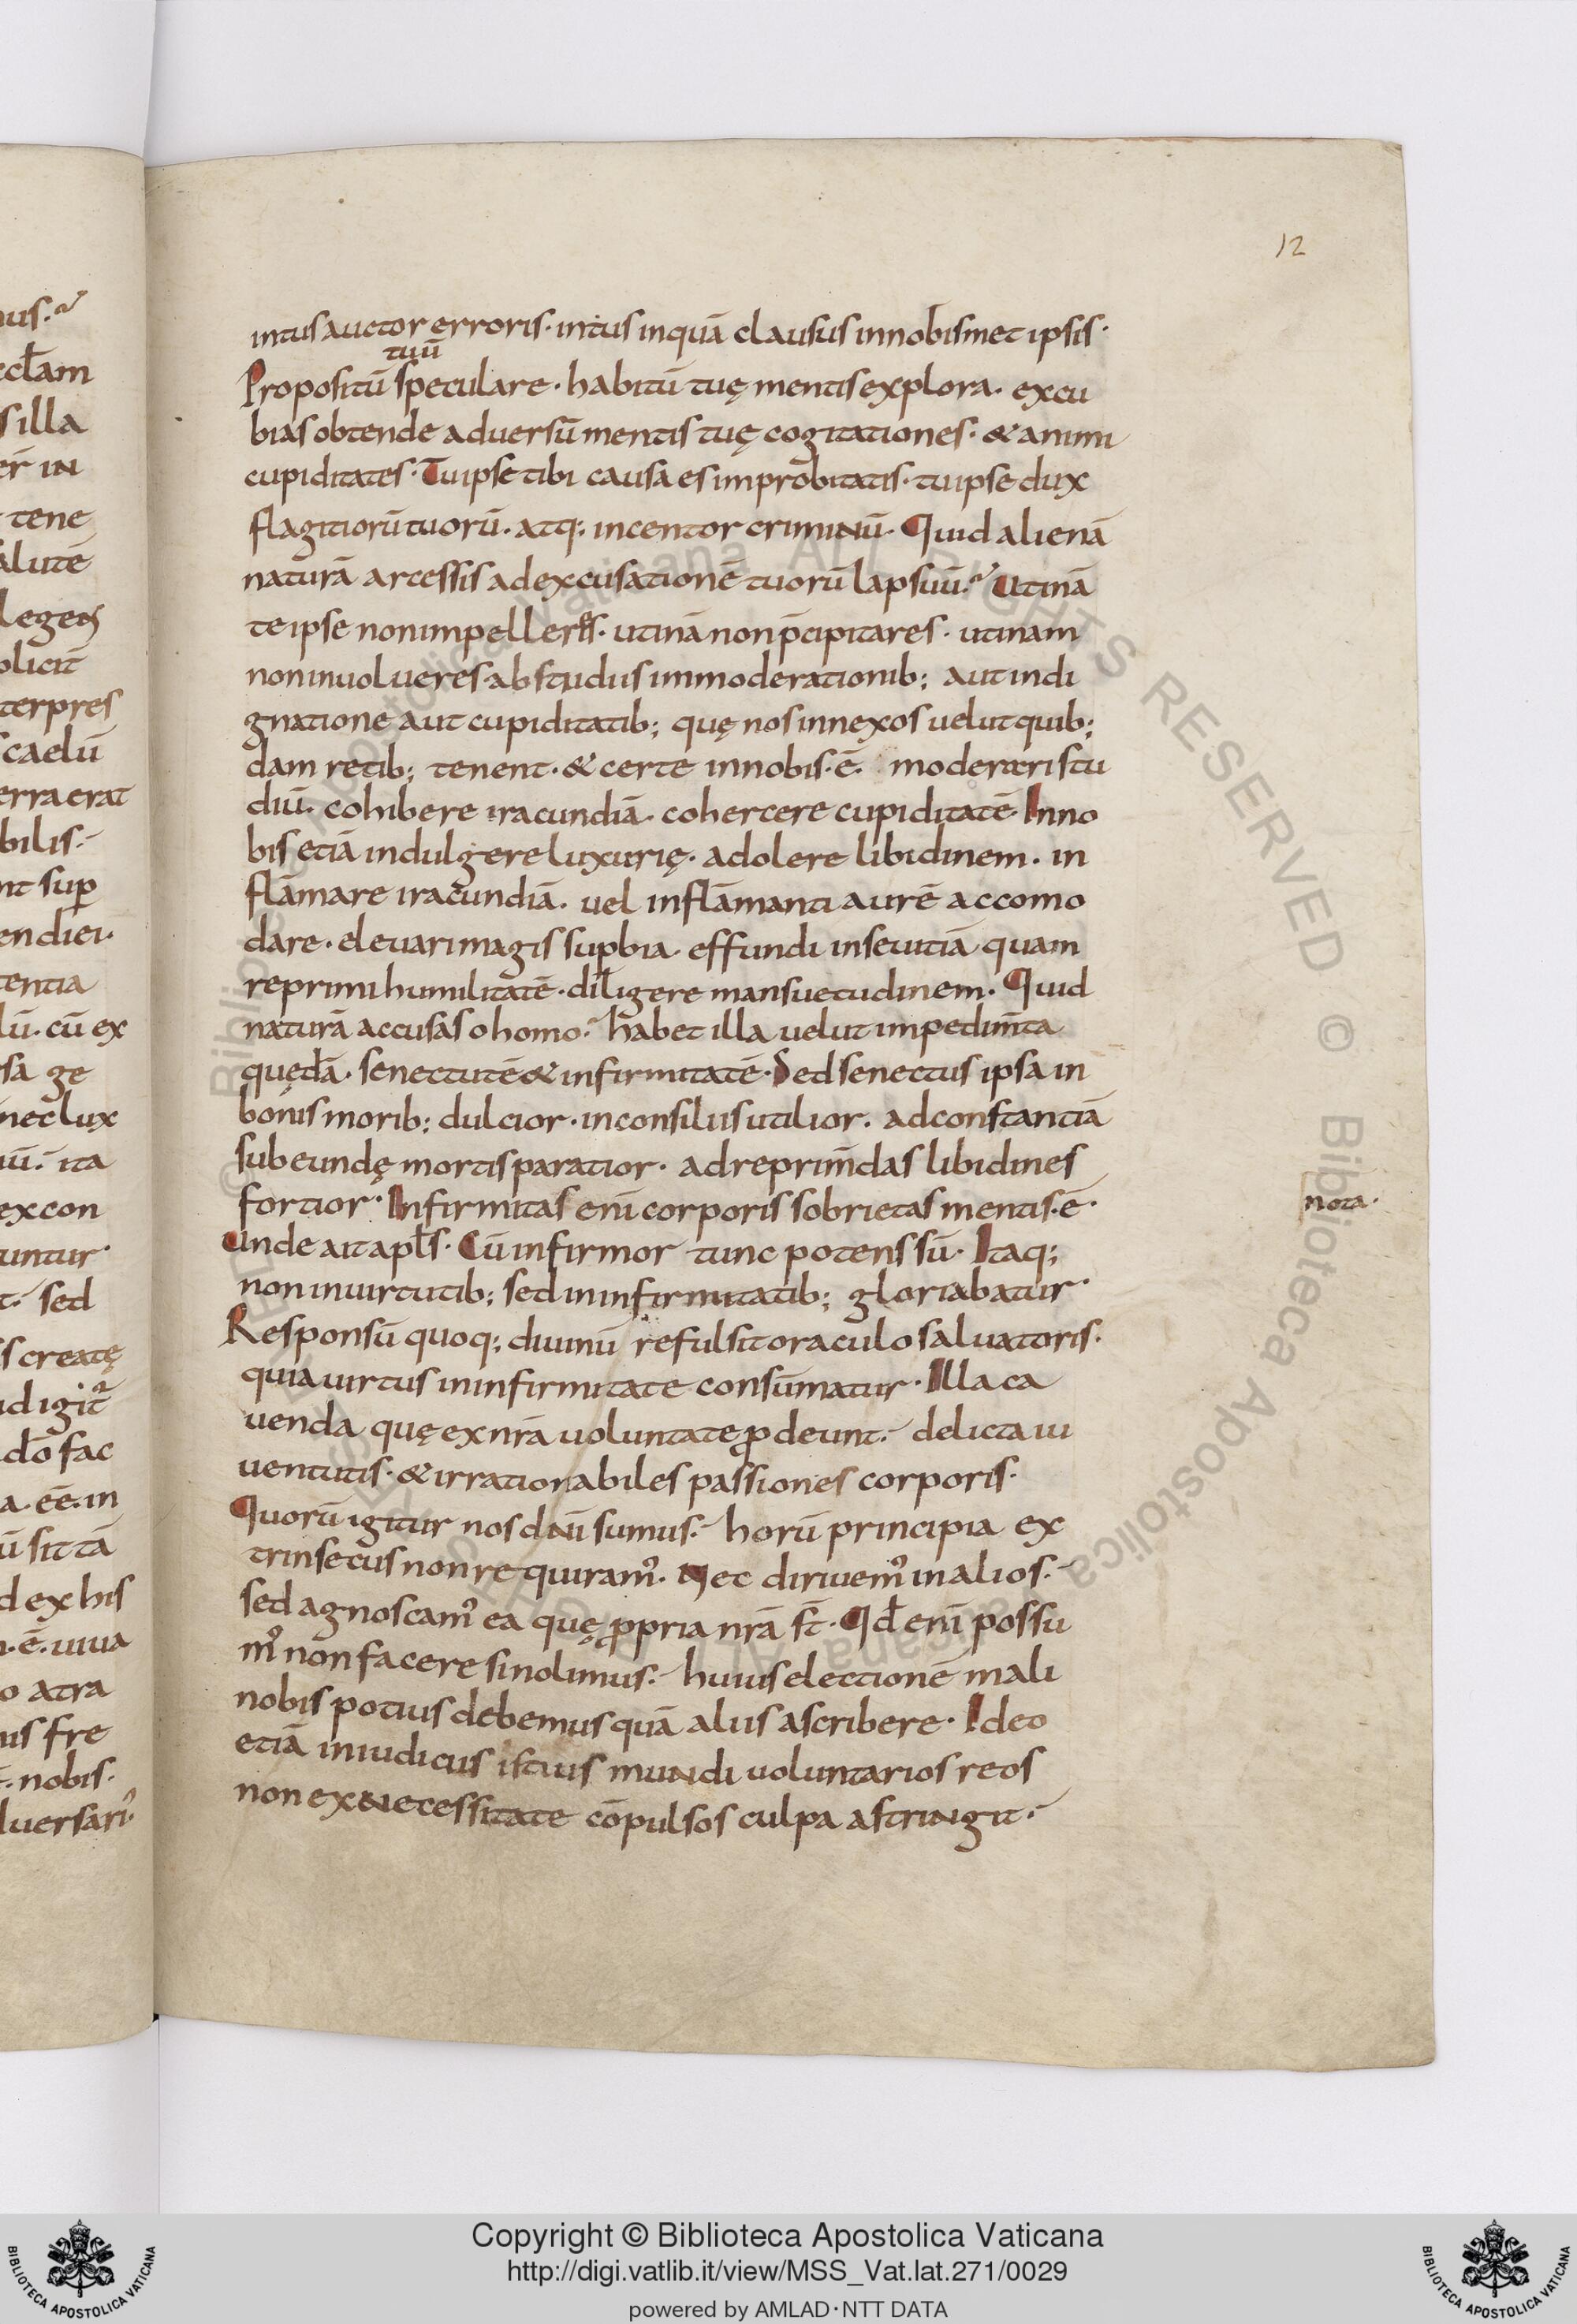 12
intus auctor erroris· intus inquā clausus in nobismet ipsis·
tuū
Propositū speculare· habitū tuę mentis explora· excu
bias obtende adversū mentis tuę cogitationes· & animi
cupiditates· Tu ipse tibi causa es improbitatis· tu ipse dux
flagitiorū tuorū· atq; incentor criminū· Quid alienā
naturā arcessis ad excusationē tuorū lapsuū? Utinā
te ipse non impelleres· utinā non p̄cipitares· utinam
non involueres ab studiis immoderationib; aut indi
gnatione aut cupiditatib; quę nos innexos velut quib;
dam retib; tenent· & certe in nobis·ē· moderari stu
diū· cohibere iracundiā· cohercere cupiditatē· In no
bis etiā indulgere luxurię· adolere libidinem· in
flāmare iracundiā· vel inflāmanti aurē accomo
dare· elevari magis suꝑbia· effundi in sevitiā quam
reprimi humilitatē· diligere mansuetudinem· Quid
naturā accusas o homo? habet illa velut impedim̄ta
quędā· senectutē & infirmitatē· Sed senectus ipsa in
bonis morib; dulcior· in consiliis utilior· ad constantiā
subeundę mortis paratior· ad reprim̄das libidines
fortior· Infirmitas enī corporis sobrietas mentis·ē·
nota·
Unde ait apl̄s· Cū infirmor tunc potens sū· Itaq;
non in virtutib; sed in infirmitatib; gloriabatur·
Responsū quoq; divinū refulsit oraculo salvatoris·
quia virtus in infirmitate consūmatur· Illa ca
venda quę ex nr̄a voluntate ꝓdeunt· delicta iu
ventutis· & irrationabiles passiones corporis·
Quorū igitur nos dn̄i sumus· horū principia ex
trinsecus non requiram᾿· Nec dirivem᾿ in alios·
sed agnoscam᾿ ea quę ꝓpria nr̄a st̄· Qd̄ enī possu
m᾿ non facere si nolimus· huius electionē mali
nobis potius debemus quā aliis ascribere· Ideo
etiā in iudiciis istius mundi voluntarios reos
non ex necessitate cōpulsos culpa astringit·
Copyright © Biblioteca Apostolica Vaticana
http://digi.vatlib.it/view/MSS_Vat.lat.271/0029
powered by AMLAD·NTT DATA
BIBLIOTECA APOSTOLICA VATICANA
BIBLIOTECA APOSTOLICA VATICANA